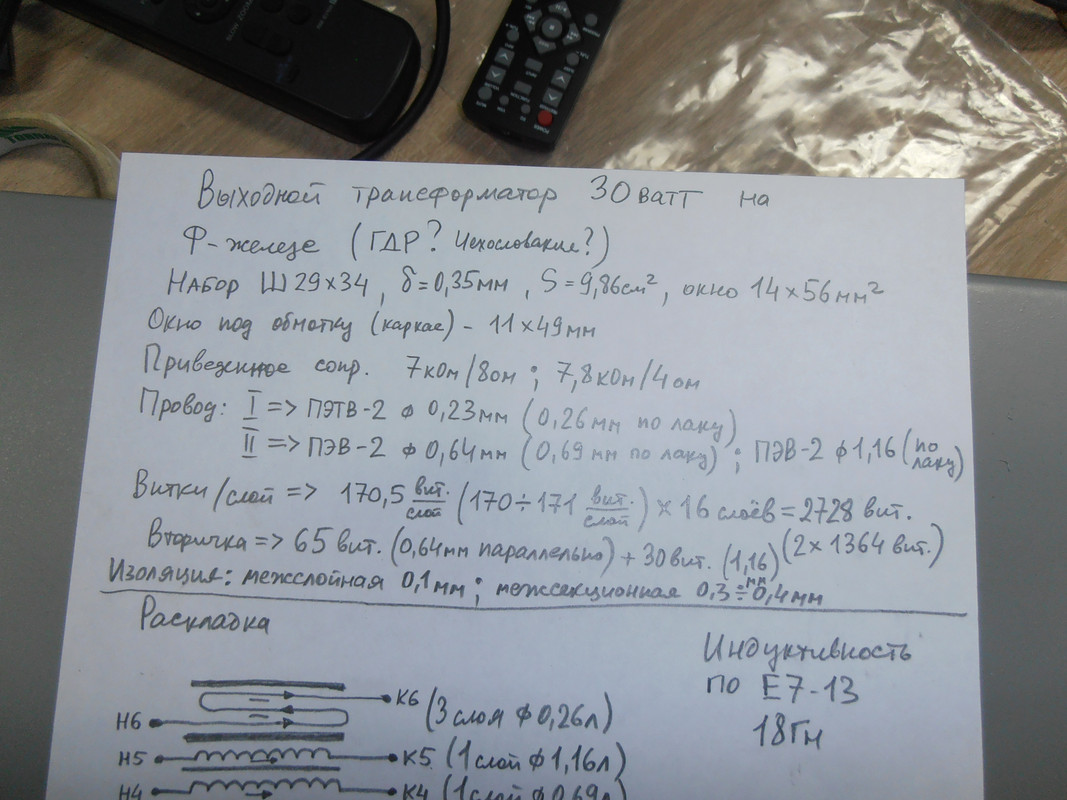 Выходной трансформатор 30 ватт на
Ф-железе (ГДР? Чехословакие?)
Набор Ш29х34, δ=0,35мм, S=9,86см², окно 14х56мм²
Окно под обмотку (каркас) - 11х49мм
Приведенное сопр. 7кОм/8ом ; 7,8кОм/4ом
Провод: I => ПЭТВ-2 ф 0,23мм (0,26мм по лаку)
II => ПЭВ-2 ф 0,64мм (0,69мм по лаку) ; ПЭВ-2 ф1,16 (по лаку)
Витки/слой => 170,5 вит./слой (170÷171 вит./слой) х 16 слоёв = 2728 вит.
(2х1364 вит.)
Вторичка => 65 вит. (0,64мм параллельно) + 30 вит. (1,16 мм)
Изоляция: межслойная 0,1мм ; межсекционная 0,3÷0,4мм
Раскладка
Индуктивность
по Е7-13
18Гн
К6 (3 слоя ф 0,26л)
Н6
Н5 К5 (1 слой ф 1,16л)
Н4 К4 (1 слой ф 0,69л)
POWER